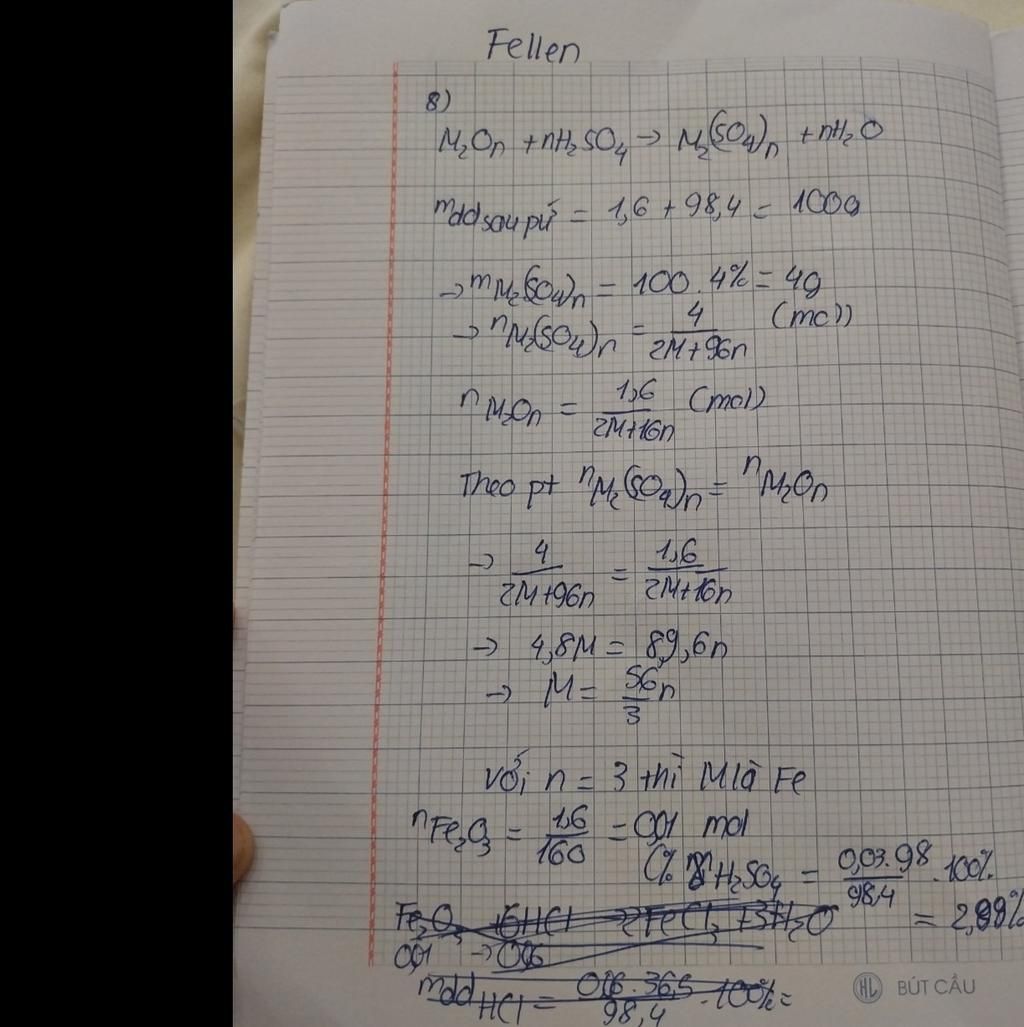 Fellen
8)
M₂Oₙ + nH₂SO₄ → M₂(SO₄)ₙ + nH₂O
mdd sau pứ = 1,6 + 98,4 = 100g
→ mM₂(SO₄)ₙ = 100 . 4% = 4g
→ nM₂(SO₄)ₙ = 4/(2M+96n) (mol)
nM₂Oₙ = 1,6/(2M+16n) (mol)
Theo pt nM₂(SO₄)ₙ = nM₂Oₙ
→ 4/(2M+96n) = 1,6/(2M+16n)
→ 4,8M = 89,6n
→ M = 56/3 n
với n = 3 thì M là Fe
nFe₂O₃ = 1,6/160 = 0,01 mol
C% H₂SO₄ = 0,03.98/98,4 . 100%
= 2,99%
Fe₂O₃ + 6HCl → 2FeCl₃ + 3H₂O
0,01 → 0,06
mdd HCl = 0,06.36,5/98,4 . 100% =
HL BÚT CẦU